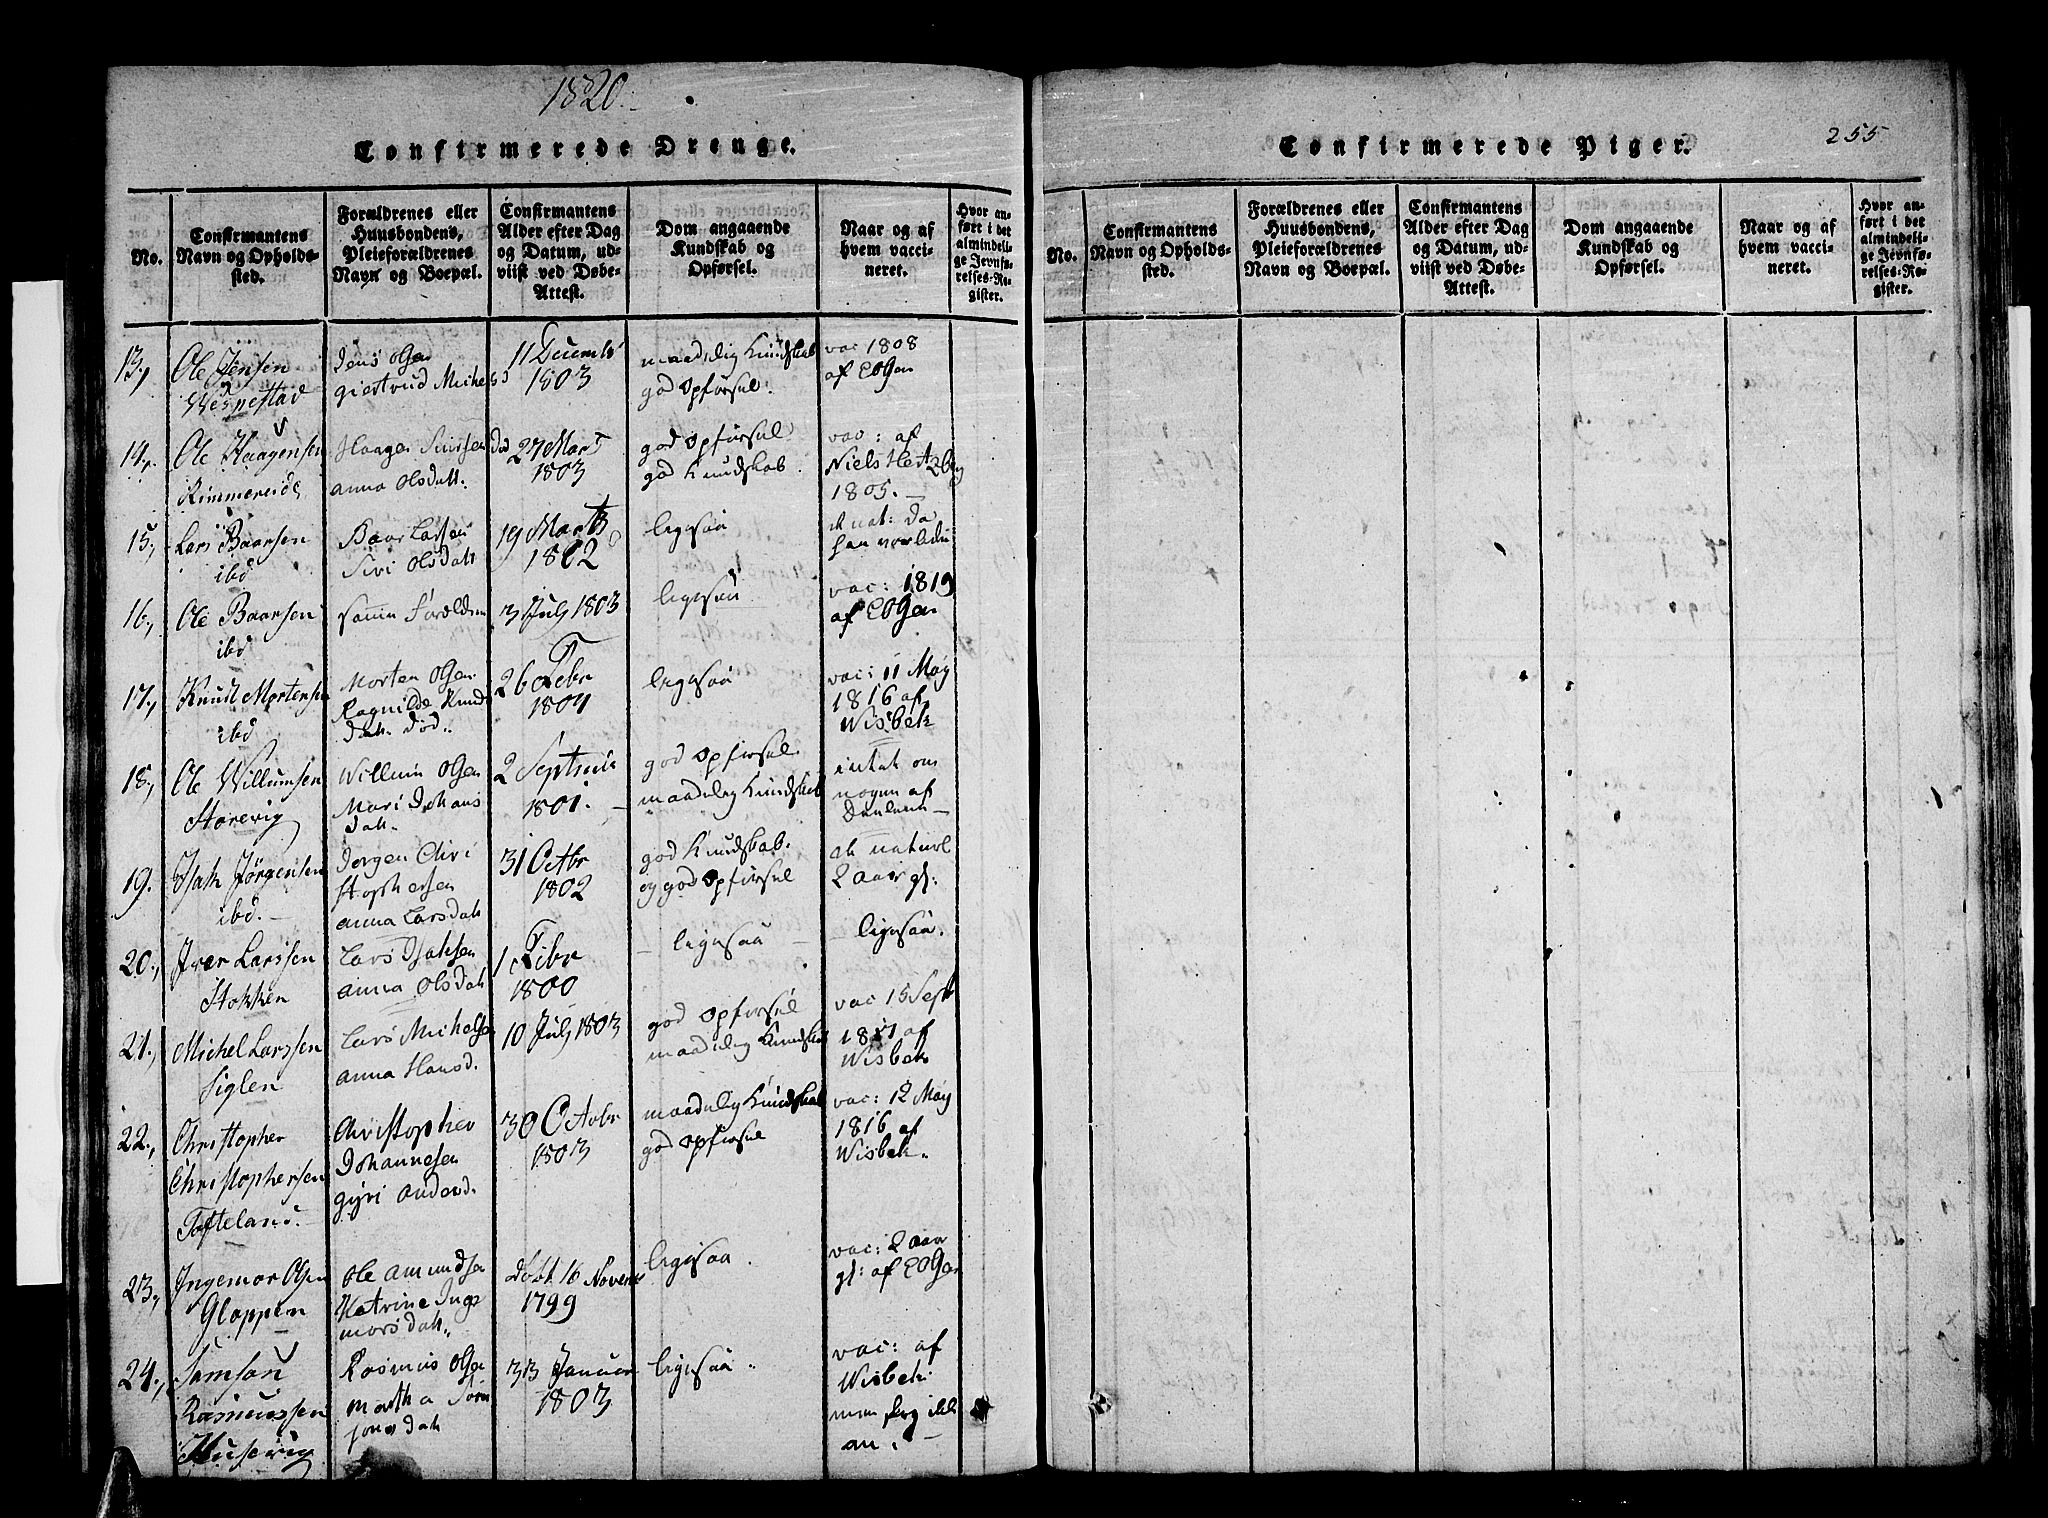 1820.
Confirmerede Drenge.
No.
Confirmantens
Navn og Opholds-
sted.
Forældrenes eller
Huusbondens,
Pleieforældrenes
Navn og Boepæl.
Confirmantens
Alder efter Dag
og Datum, ud-
viist ved Døbe-
Attest.
Dom angaaende
Kundskab og
Opførsel.
Naar og af
hvem vacci-
neret.
Hvor an-
ført i det
almindeli-
ge Jevnfø-
relses-Re-
gister.
13.,
Ole Jensen
Jens Olsen
giertrud Michels
1803
maadelig Kundskab
god Opførsel.
vac 1808
af E Olsen
14.,
Ole Haagensen
Rimmereide
Haagen
anna Olsdatt.
27 Mart
1803
god Opførsel
god Kundskab.
vac: af
Niels
1805.
15.,
Lars Baarsen
ibd
Baar Larsen
Siri Olsdatt
19 Marts
1802
ligesaa
16.,
Ole Baarsen
ibd
samme Foreldre
3 July 1803
ligesaa
vac: 1819
af E Olsen
17.,
Knud Mortensen
ibd
Morten Olsen
Ragnilde Knuds
datt. død.
26 Febr
1804
ligesaa
vac: 11 May
1816 af
Wisbek
18.,
Ole Willumsen
Storevig
Willum Olsen
Mari Johans
datt.
2
1801.
god Opførsel
maadelig Kundskab
intet om
nogen af
Deelene
19.
Isak Jörgensen
ibd.
Jorgen Chri
stophersen
anna Larsdatt
31 Octbr
1802
god Kundskab.
og god Opførsel
naturl
2 aar gl:
20.,
Iver Larssen
Stokken
Lars Isaksen
anna Olsdatt
1 Febr
1800
ligesaa
ligesaa.
21.,
Michel Larssen
Siglen
Lars Michelsen
anna Hansd.
10 July 1803
god Opførsel
maadelig Kundskab
vac 15 Sept
af
Wisbek
22.,
Christopher
Christophersen
Tofteland.
Christopher
Johannesen
gyri Andersd.
30 Octobr
1803
maadelig Kundskab
god Opførsel
vac: 12 May
1816 af
Wisbek.
23.,
Ingemor Olsen
Gloppen
Ole Amundsen
Katrine Inge
morsdatt.
døbt. 16 Novemb
1799
ligesaa.
vac: 2 aar
gl: af E Olsen
24.,
Samson
Rasmussen
Husevig
Rasmus Olsen
martha
jonsdatt
Januar
1803
ligesaa.
vac: af
Wisbek
an.
255
Confirmerede Piger.
No.
Confirmantens
Navn og Opholds-
sted.
Forældrenes eller
Huusbondens,
Pleieforældrenes
Navn og Boepæl.
Confirmantens
Alder efter Dag
og Datum, ud-
viist ved Døbe-
Attest.
Dom angaaende
Kundskab og
Opførsel.
Naar og af
hvem vacci-
neret.
Hvor an-
ført i det
almindeli-
ge Jevnfø-
relses-Re-
gister.